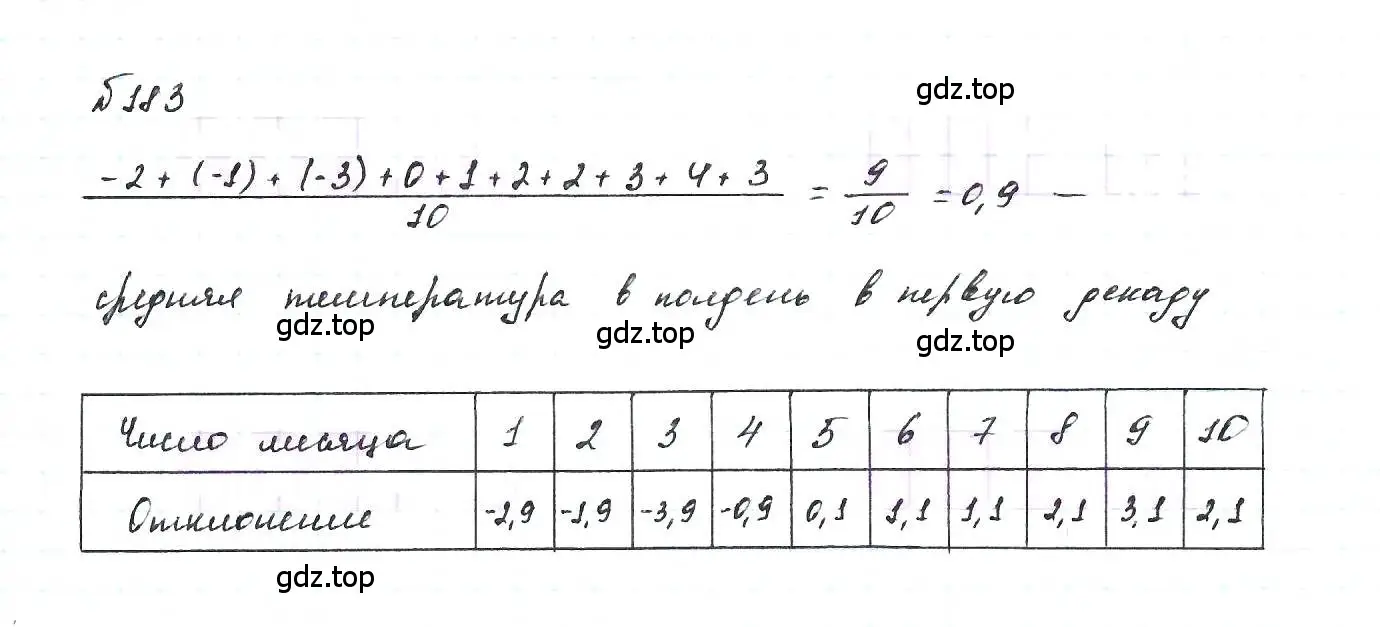 №183
gdz.top
-2 + (-1) + (-3) + 0 + 1 + 2 + 2 + 3 + 4 + 3 / 10 = 9/10 = 0,9 —
средняя температура в полдень в первую декаду
gdz.top gdz.top gdz.top
Число месяца 1 2 3 4 5 6 7 8 9 10
Отклонение -2,9 -1,9 -3,9 -0,9 0,1 1,1 1,1 2,1 3,1 2,1
gdz.top